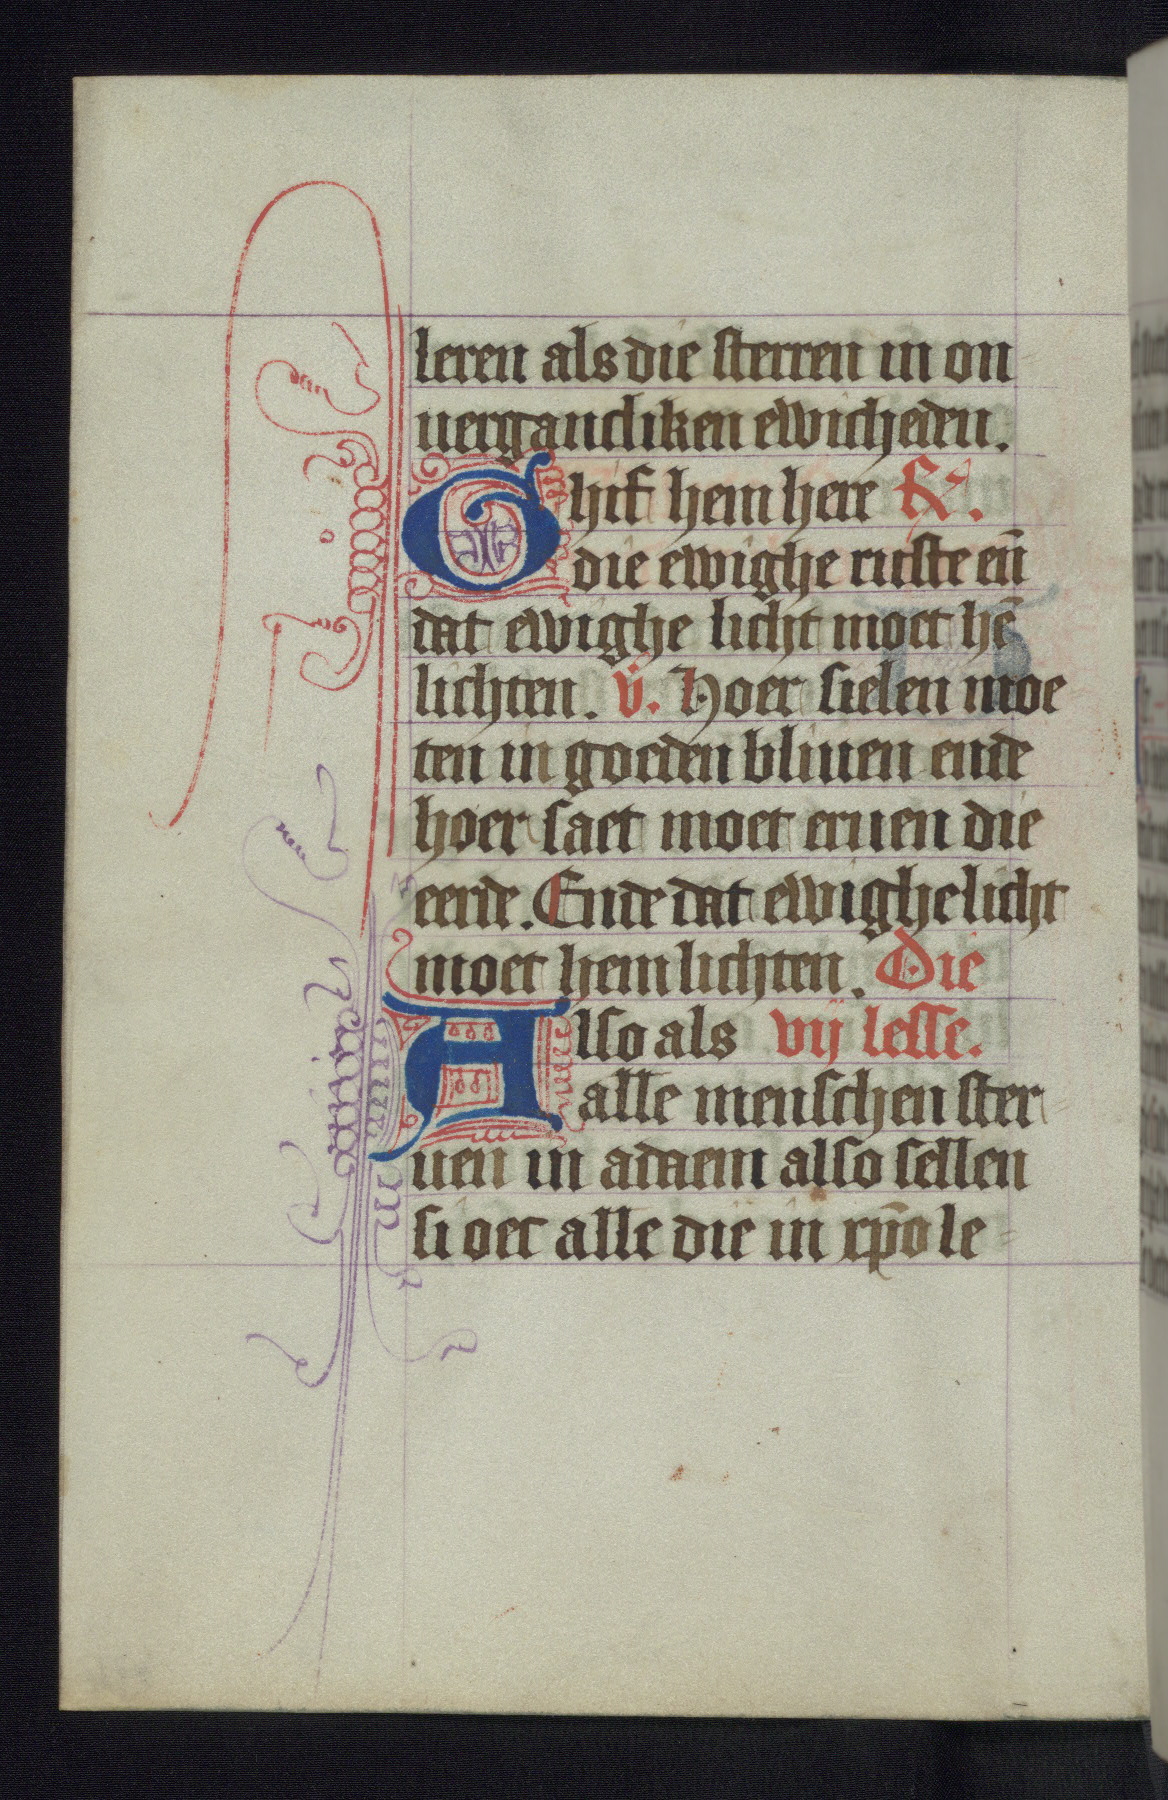 leren als die sterren in on
uergancliken ewicheden.
Ghif hem here R̷.
die ewighe ruste en̄
dat ewighe licht moet hē
lichten. v̇. Hoer sielen moe
ten in goeden bliuen ende
hoer saet moet eruen die
eerde. Ende dat ewighe licht
moet hem lichten. Die
Also als vij lesse.
alle menschen ster
uen in adaem also sellen
si oec alle die in xp̄o le=